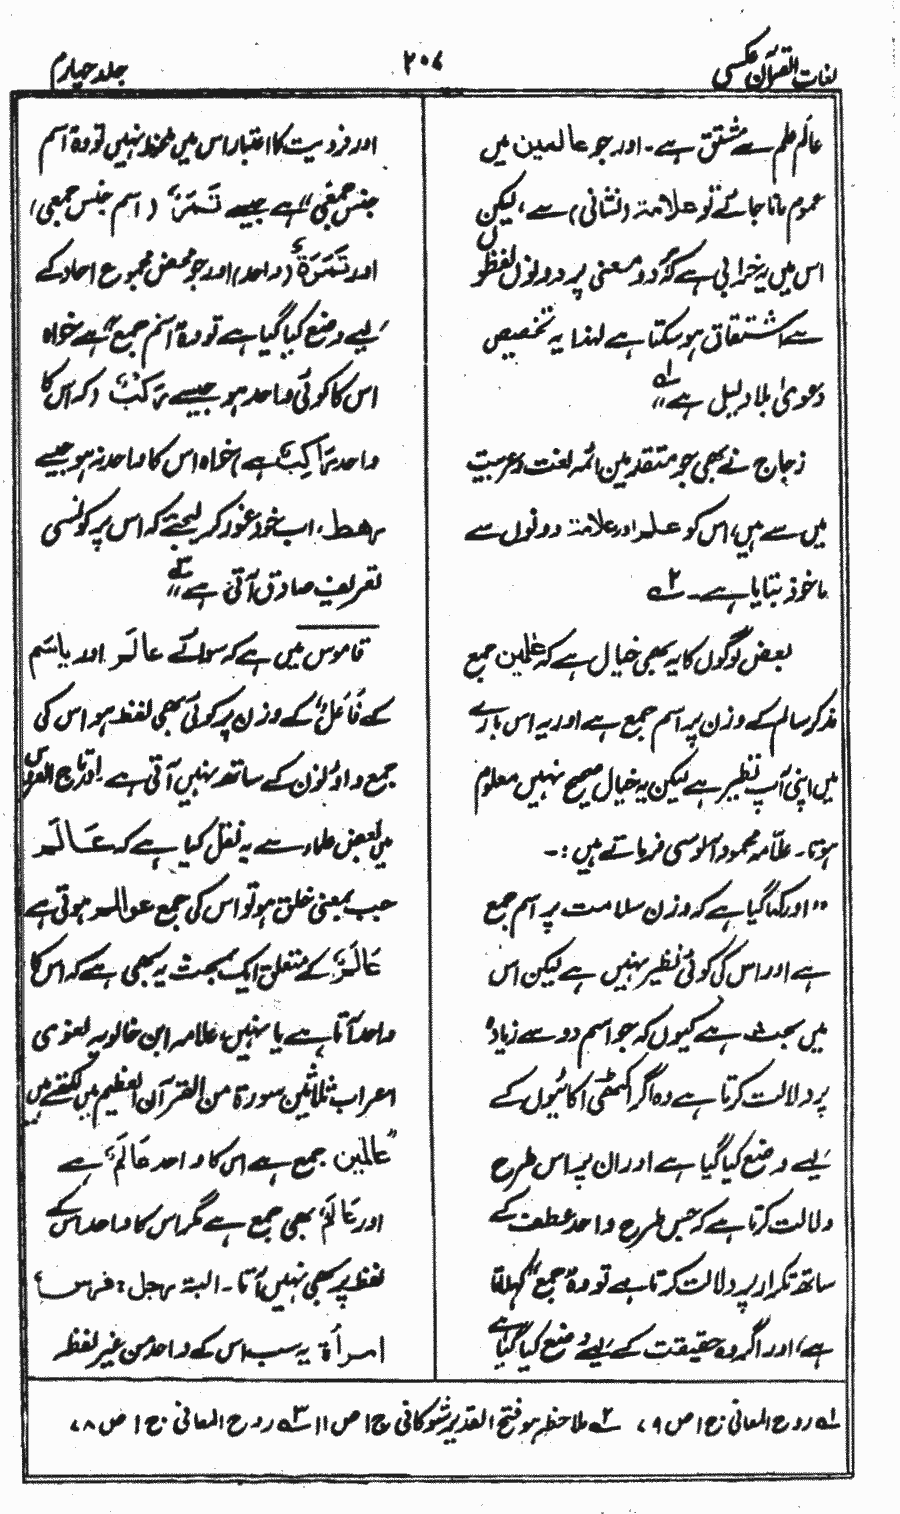 لغات القرآن عکسی
۲۰۷
جلد چہارم
عالَم علم سے مشتق ہے۔ اور جو عالمین میں
عموم مانا جائے تو علامۃ (نشانی) سے، لیکن
اس میں یہ خرابی ہے کہ دو معنی پر دونوں لفظوں
سے اشتقاق ہو سکتا ہے لہٰذا یہ تخصیص
دعویٰ بلا دلیل ہے" ۱ھ
زجاج نے بھی جو متقدمین ائمہ لغت و عربیت
میں سے ہیں، اس کو علم اور علامۃ دونوں سے
ماخوذ بتایا ہے۔ ۲ھ
بعض لوگوں کا یہ بھی خیال ہے کہ عٰلمین جمع
مذکر سالم کے وزن پر اسم جمع ہے اور یہ اس بارے
میں اپنی آپ نظیر ہے لیکن یہ خیال صحیح نہیں معلوم
ہوتا۔ علّامہ محمود آلوسی فرماتے ہیں :-
"اور کہا گیا ہے کہ وزن سلامت پر اسم جمع
ہے اور اس کی کوئی نظیر نہیں ہے لیکن اس
میں بحث ہے کیوں کہ جو اسم دو سے زیادہ
پر دلالت کرتا ہے وہ اگر اکٹھی اکائیوں کے
لیے وضع کیا گیا ہے اور ان پر اس طرح
دلالت کرتا ہے کہ جس طرح واحد عطف کے
ساتھ تکرار پر دلالت کرتا ہے تو وہ "جمع" کہلاتا
ہے، اور اگر وہ حقیقت کے لیے وضع کیا گیا ہے
اور فردیت کا اعتبار اس میں ملحوظ نہیں تو وہ اسم
جنس جمعی" ہے جیسے تَمَرٌ (اسم جنس جمعی)
اور تَمَرَۃٌ (واحد) اور جو محض مجموع احاد کے
لیے وضع کیا گیا ہے تو وہ "اسم جمع" ہے خواہ
اس کا کوئی واحد ہو جیسے رَکبٌ (کہ اس کا
واحد رَاکِبٌ ہے) خواہ اس کا واحد نہ ہو جیسے
رھط، اب خود غور کر لیجئے کہ اس پر کونسی
تعریف صادق آتی ہے" ۳ھ
قاموس میں ہے کہ سوائے عالَم اور یاسَم
کے فَاعَلٌ کے وزن پر کوئی بھی لفظ ہو اس کی
جمع واؤ نون کے ساتھ نہیں آتی ہے۔ اور تاج العروس
میں بعض علماء سے یہ نقل کیا ہے کہ عَالَم
جب بمعنی خلق ہو تو اس کی جمع عوالم ہوتی ہے
عَالَمٌ کے متعلق ایک بحث یہ بھی ہے کہ اس کا
واحد آتا ہے یا نہیں، علامہ ابن خالویہ لغوی
اعراب ثلاثین سورۃ من القرآن العظیم میں لکھتے ہیں
"عٰالمین جمع ہے اس کا واحد عَالَمٌ ہے
اور عَالَمٌ بھی جمع ہے مگر اس کا واحد اس کے
لفظ پر کبھی نہیں آتا۔ البتہ رجل؛ فرس؛
امرأۃ یہ سب اس کے واحد من غیر لفظہ
۱ھ روح المعانی ج ۱ ص ۷۹، ۲ھ ملاحظہ ہو فتح القدیر شوکانی ج ۱ ص ۱۱ ۳ھ روح المعانی ج ۱ ص ۷۸،